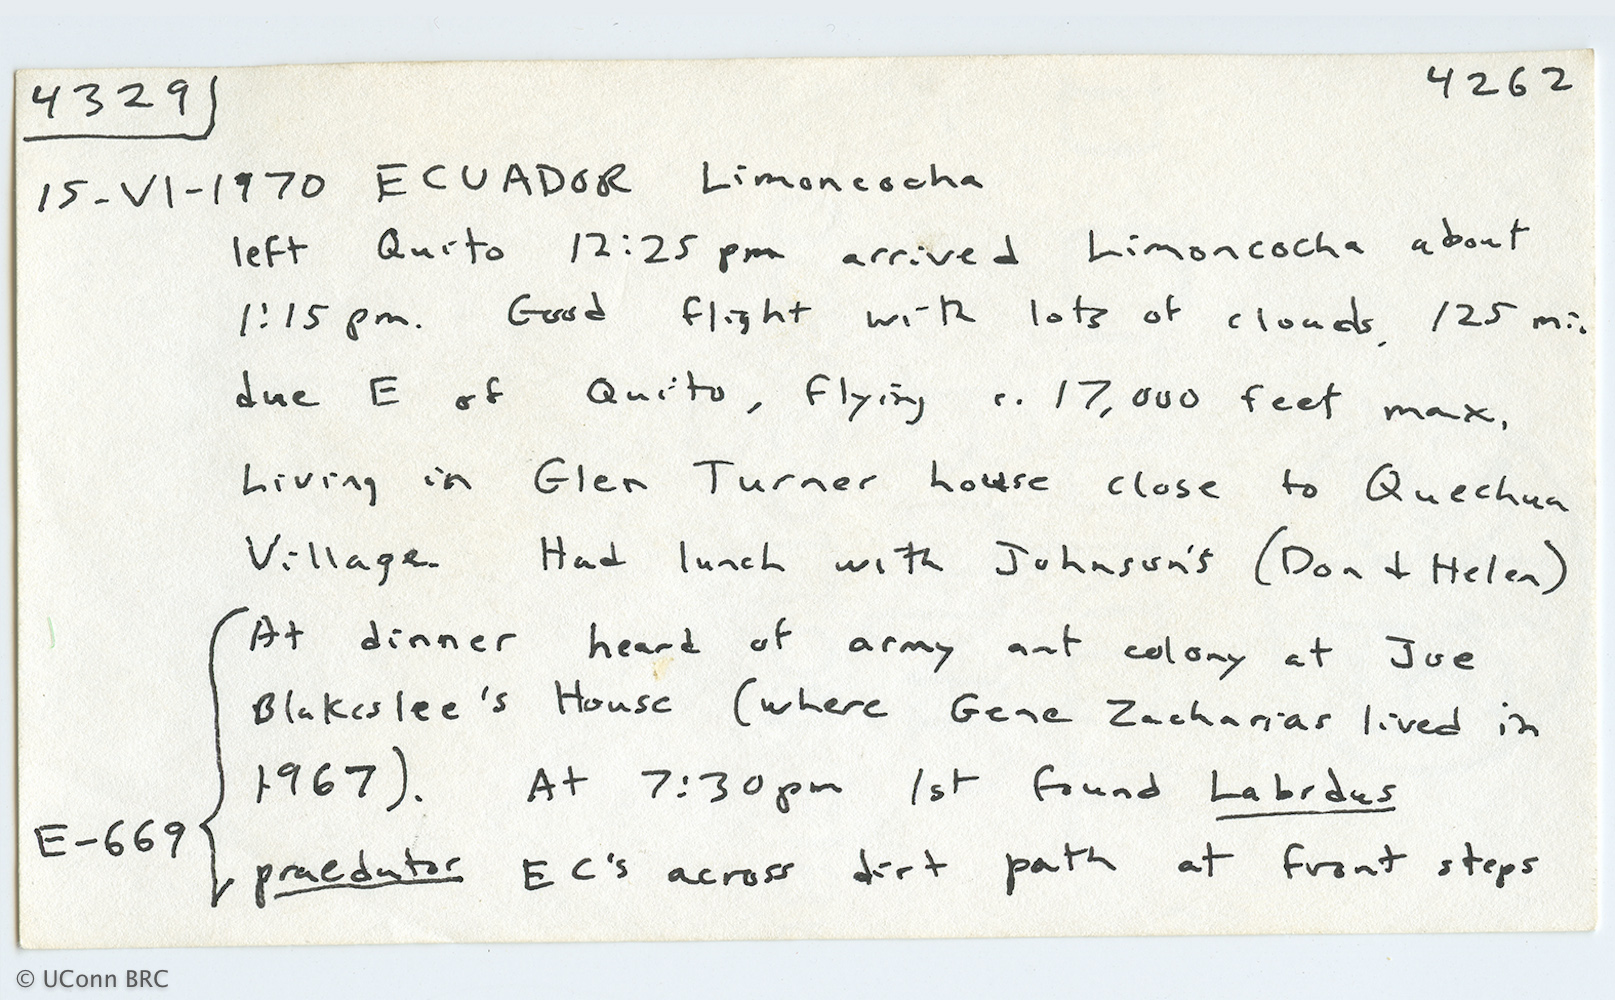 4329 4262
15-VI-1970 ECUADOR Limoncocha
left Quito 12:25 pm arrived Limoncocha about
1:15 pm. Good flight with lots of clouds, 125 mi.
due E of Quito, flying c. 17,000 feet max.
Living in Glen Turner house close to Quechua
Village. Had lunch with Johnson's (Don & Helen)
At dinner heard of army ant colony at Joe
Blakeslee's House (where Gene Zacharias lived in
1967). At 7:30pm 1st found Labidus
E-669 praedator EC's across dirt path at front steps
© UConn BRC